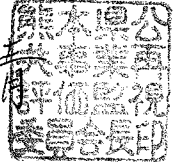 熊本県公
共事業再
評価監視
委員会長印